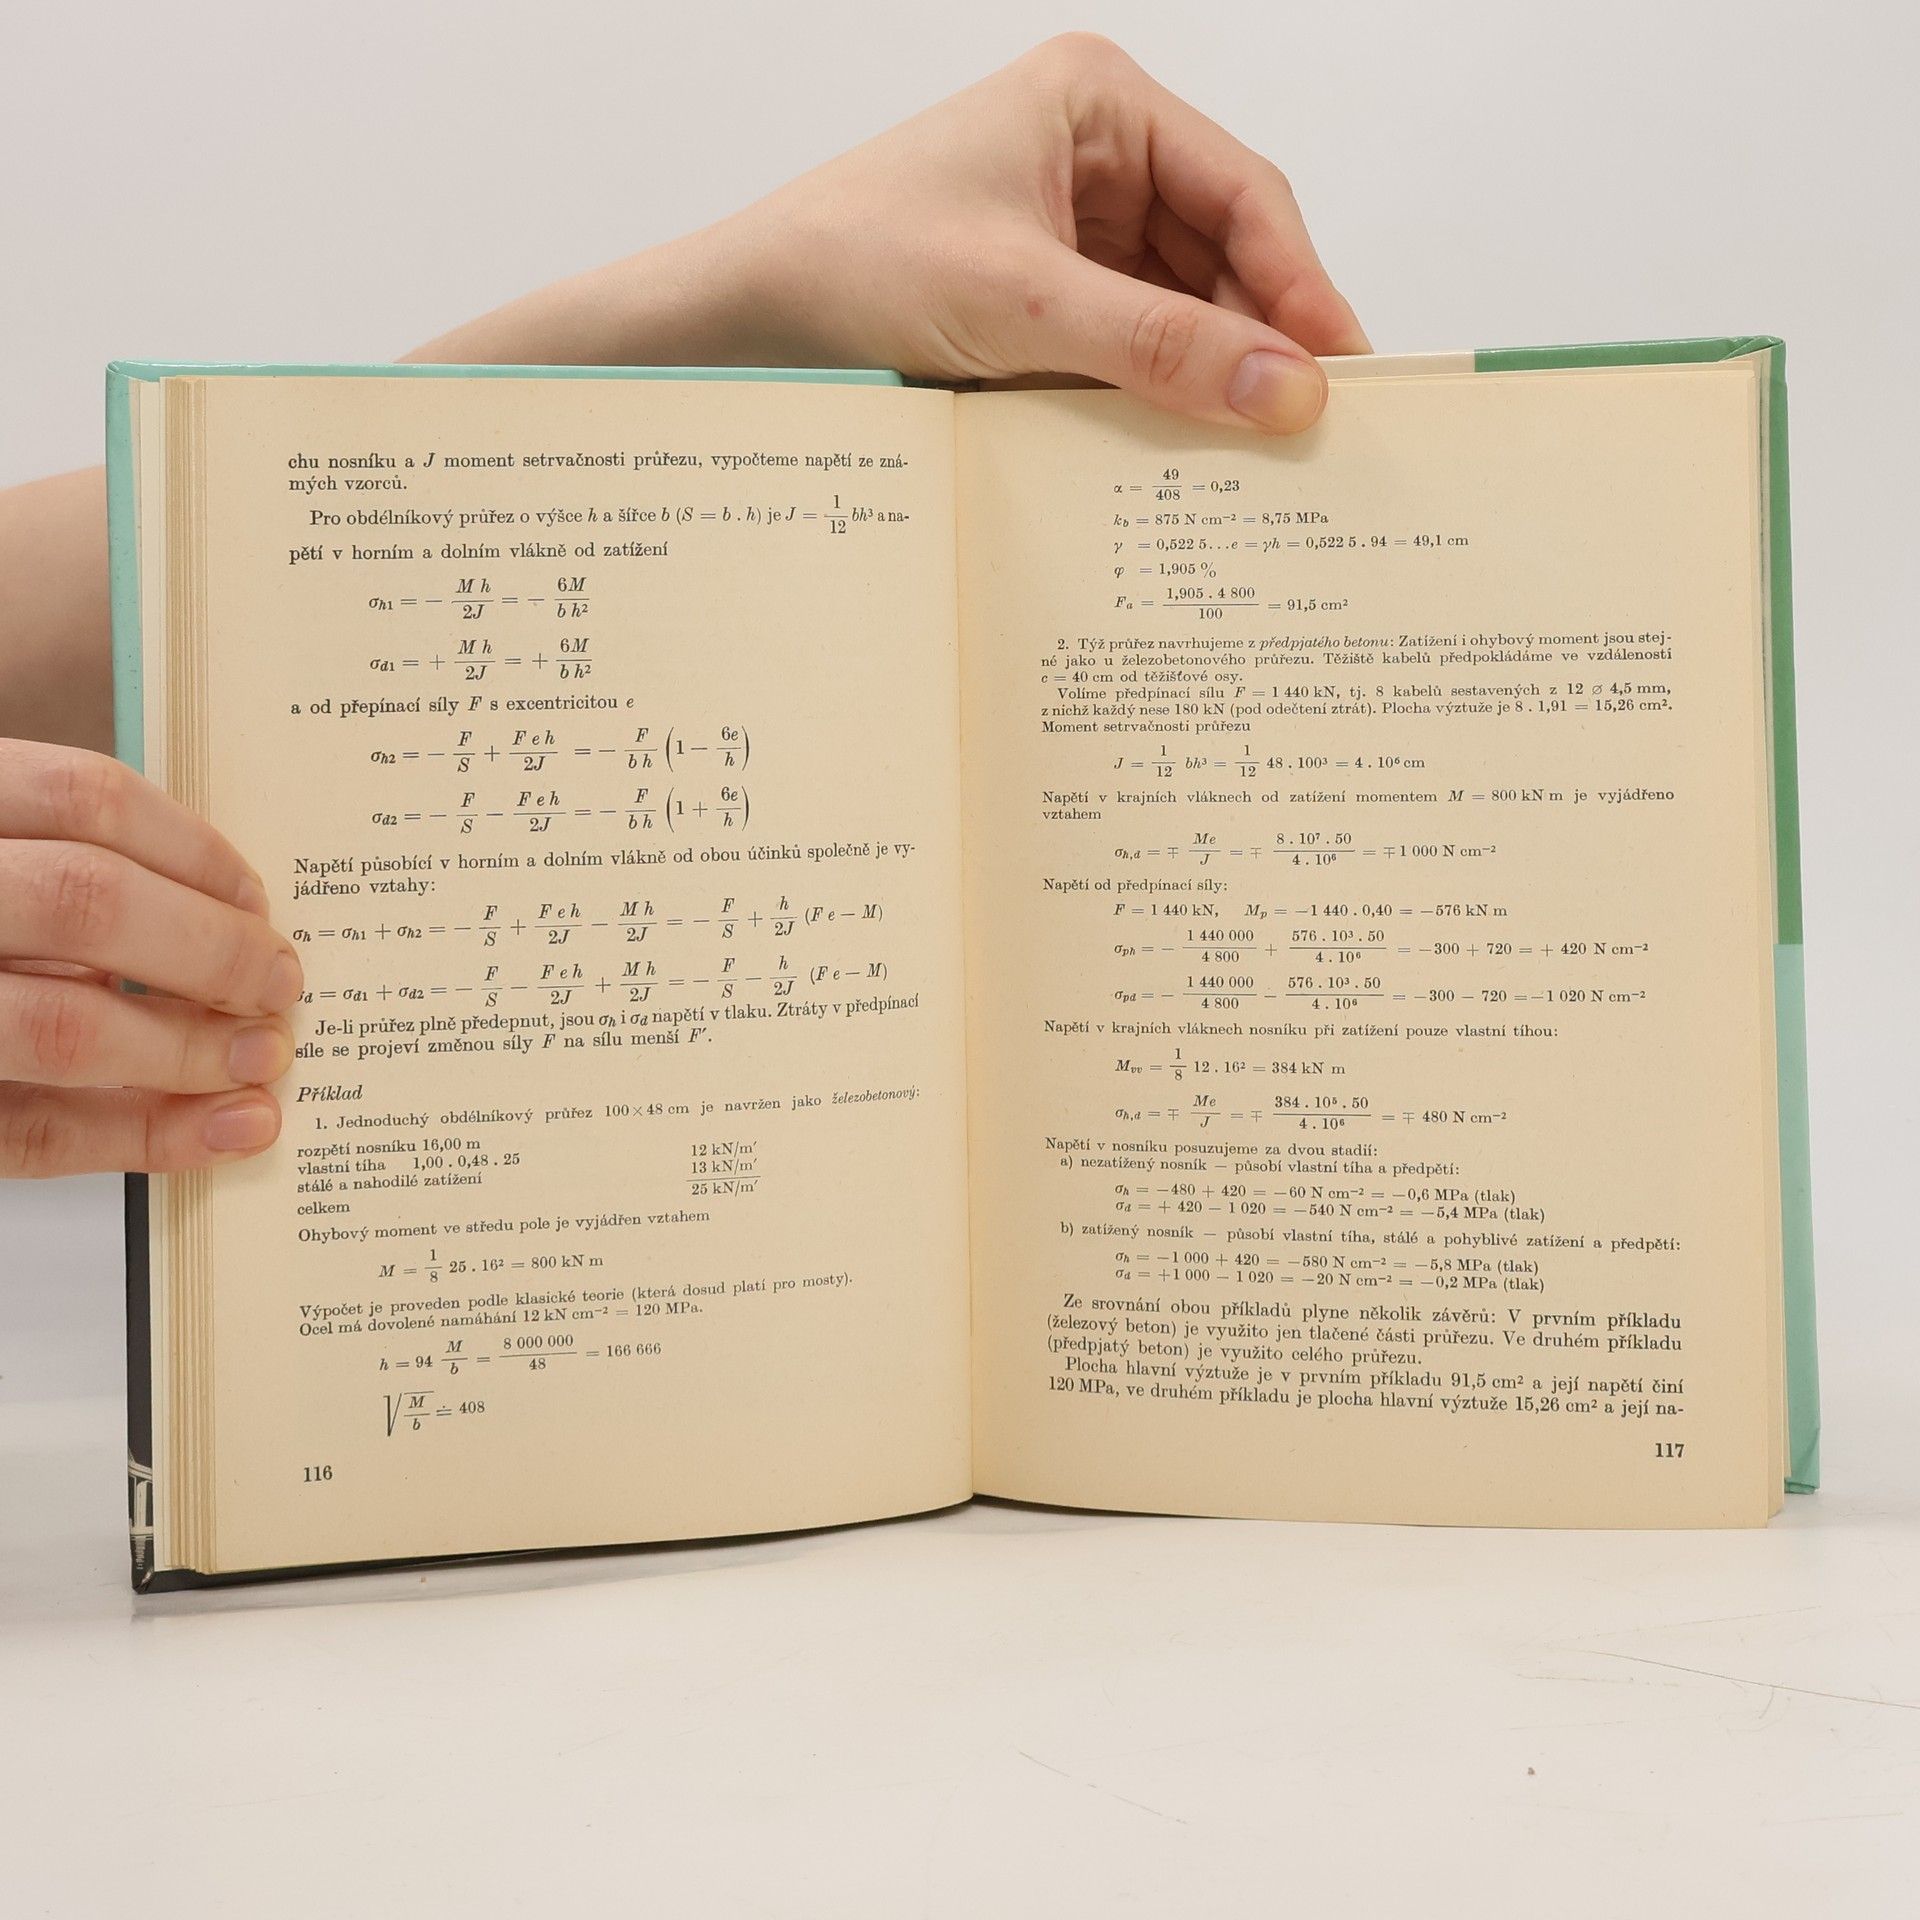 chu nosníku a J moment setrvačnosti průřezu, vypočteme napětí ze zná-
mých vzorců.
Pro obdélníkový průřez o výšce h a šířce b (S = b . h) je J = 1/12 bh³ a na-
pětí v horním a dolním vlákně od zatížení
σh1 = − M h/2J = − 6M/b h²
σd1 = + M h/2J = + 6M/b h²
a od přepínací síly F s excentricitou e
σh2 = − F/S + F e h/2J = − F/b h (1 − 6e/h)
σd2 = − F/S − F e h/2J = − F/b h (1 + 6e/h)
Napětí působící v horním a dolním vlákně od obou účinků společně je vy-
jádřeno vztahy:
σh = σh1 + σh2 = − F/S + F e h/2J − M h/2J = − F/S + h/2J (F e − M)
σd = σd1 + σd2 = − F/S − F e h/2J + M h/2J = − F/S − h/2J (F e − M)
Je-li průřez plně předepnut, jsou σh i σd napětí v tlaku. Ztráty v předpínací
síle se projeví změnou síly F na sílu menší F′.
Příklad
1. Jednoduchý obdélníkový průřez 100 × 48 cm je navržen jako železobetonový:
rozpětí nosníku 16,00 m
vlastní tíha 1,00 . 0,48 . 25 12 kN/m′
stálé a nahodilé zatížení 13 kN/m′
celkem 25 kN/m′
Ohybový moment ve středu pole je vyjádřen vztahem
M = 1/8 25 . 16² = 800 kN m
Výpočet je proveden podle klasické teorie (která dosud platí pro mosty).
Ocel má dovolené namáhání 12 kN cm⁻² = 120 MPa.
h = 94 M/b = 8 000 000/48 = 166 666
√M/b ≐ 408
116
α = 49/408 = 0,23
kb = 875 N cm⁻² = 8,75 MPa
γ = 0,522 5...e = γh = 0,522 5 . 94 = 49,1 cm
φ = 1,905 %
Fa = 1,905 . 4 800/100 = 91,5 cm²
2. Týž průřez navrhujeme z předpjatého betonu: Zatížení i ohybový moment jsou stej-
né jako u železobetonového průřezu. Těžiště kabelů předpokládáme ve vzdálenosti
c = 40 cm od těžišťové osy.
Volíme předpínací sílu F = 1 440 kN, tj. 8 kabelů sestavených z 12 ⌀ 4,5 mm,
z nichž každý nese 180 kN (pod odečtení ztrát). Plocha výztuže je 8 . 1,91 = 15,26 cm².
Moment setrvačnosti průřezu
J = 1/12 bh³ = 1/12 48 . 100³ = 4 . 10⁶ cm
Napětí v krajních vláknech od zatížení momentem M = 800 kN m je vyjádřeno
vztahem
σh,d = ∓ Me/J = ∓ 8 . 10⁷ . 50/4 . 10⁶ = ∓ 1 000 N cm⁻²
Napětí od předpínací síly:
F = 1 440 kN, Mp = −1 440 . 0,40 = −576 kN m
σph = − 1 440 000/4 800 + 576 . 10³ . 50/4 . 10⁶ = −300 + 720 = + 420 N cm⁻²
σpd = − 1 440 000/4 800 − 576 . 10³ . 50/4 . 10⁶ = −300 − 720 = −1 020 N cm⁻²
Napětí v krajních vláknech nosníku při zatížení pouze vlastní tíhou:
Mvv = 1/8 12 . 16² = 384 kN m
σh,d = ∓ Me/J = ∓ 384 . 10⁵ . 50/4 . 10⁶ = ∓ 480 N cm⁻²
Napětí v nosníku posuzujeme za dvou stadií:
a) nezatížený nosník — působí vlastní tíha a předpětí:
σh = −480 + 420 = −60 N cm⁻² = −0,6 MPa (tlak)
σd = + 420 − 1 020 = −540 N cm⁻² = −5,4 MPa (tlak)
b) zatížený nosník — působí vlastní tíha, stálé a pohyblivé zatížení a předpětí:
σh = −1 000 + 420 = −580 N cm⁻² = −5,8 MPa (tlak)
σd = +1 000 − 1 020 = −20 N cm⁻² = −0,2 MPa (tlak)
Ze srovnání obou příkladů plyne několik závěrů: V prvním příkladu
(železový beton) je využito jen tlačené části průřezu. Ve druhém příkladu
(předpjatý beton) je využito celého průřezu.
Plocha hlavní výztuže je v prvním příkladu 91,5 cm² a její napětí činí
120 MPa, ve druhém příkladu je plocha hlavní výztuže 15,26 cm² a její na-
117